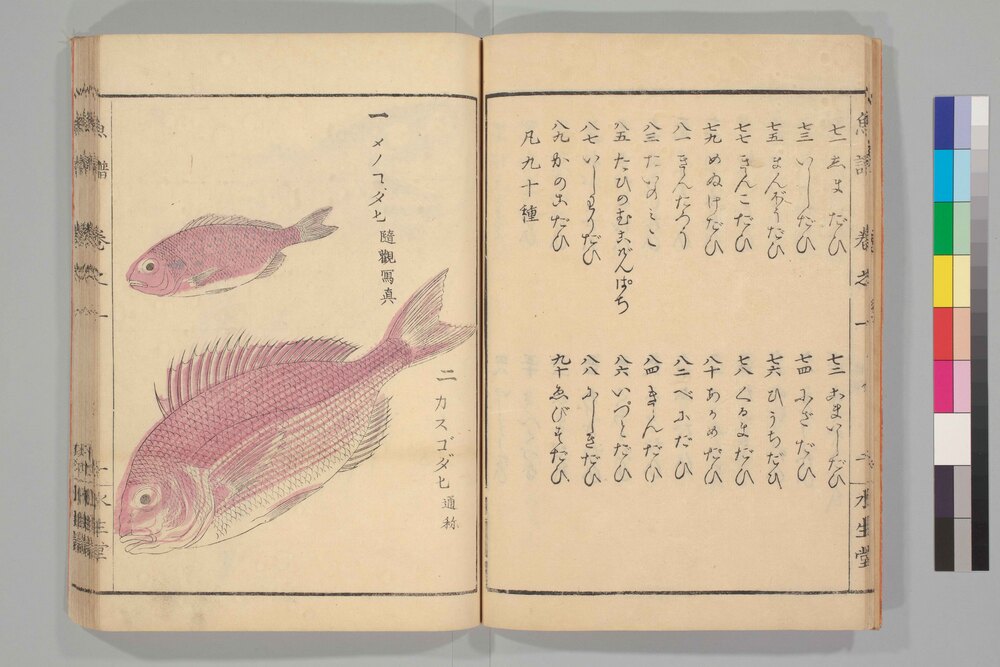 七一 ゑま だひ
七二 こまいしだひ
七三 いしだひ
七四 ふざ だひ
七五 まんぼうだひ
七六 ひうちだひ
七七 きんこだひ
七八 くるまだひ
七九 めぬけだひ
八十 あかめだひ
八一 きんたらう
八二 べにだひ
八三 たいのみこ
八四 ぎんだひ
八五 たひのむこげんぱち
八六 いつつだひ
八七 いしわりだひ
八八 ふしきだひ
八九 かのこだひ
九十 ゑびすだひ
凡九十種
魚譜 巻之一
水生堂
一 メノコダヒ 隨觀寫真
二 カスゴダヒ 通称
魚譜 巻之一
水生堂